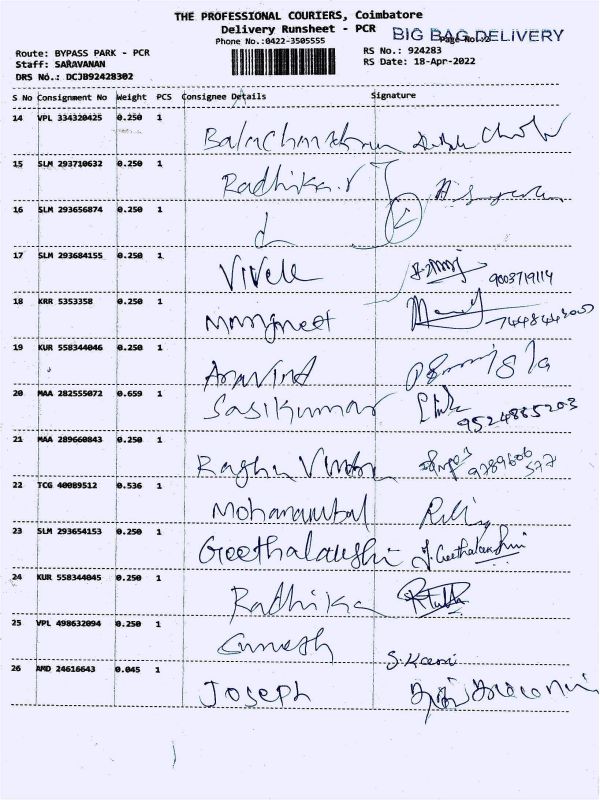 THE PROFESSIONAL COURIERS, Coimbatore
Delivery Runsheet - PCR
BIG BAG DELIVERY
Page No.:2
Phone No.:0422-3505555
Route: BYPASS PARK - PCR
RS No.: 924283
Staff: SARAVANAN
RS Date: 18-Apr-2022
DRS No.: DCJB92428302
S No Consignment No Weight PCS Consignee Details Signature
14 VPL 334320425 0.250 1
15 SLM 293710632 0.250 1
Radhika.r
16 SLM 293656874 0.250 1
17 SLM 293684155 0.250 1
Vivek 9003719114
18 KRR 5353358 0.250 1
19 KUR 558344046 0.250 1
Aravind
20 MAA 282555072 0.659 1
Sasikumar 9524865203
21 MAA 289660843 0.250 1
Raghu 9789606
577
22 TCG 40089512 0.536 1
Mohanambal
23 SLM 293654153 0.250 1
24 KUR 558344045 0.250 1
Radhika
25 VPL 498632094 0.250 1
26 AMD 24616643 0.045 1
Joseph